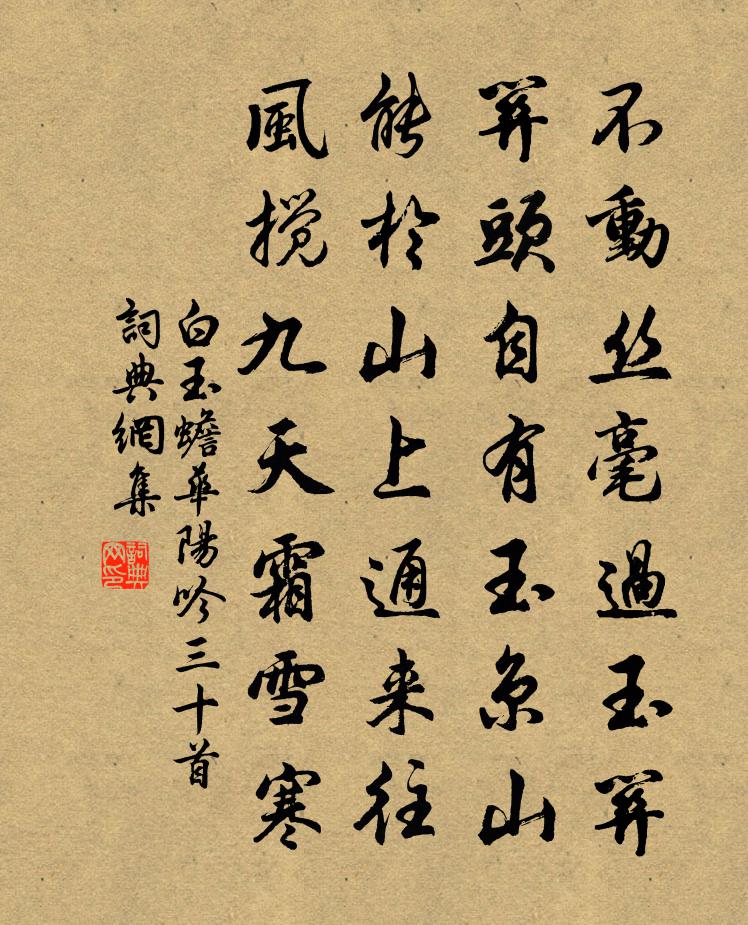 不動丝毫過玉關
關頭自有玉京山
能於山上通来往
風搅九天霜雪寒
白玉蟾華陽吟三十首
詞典網集
詞典网印